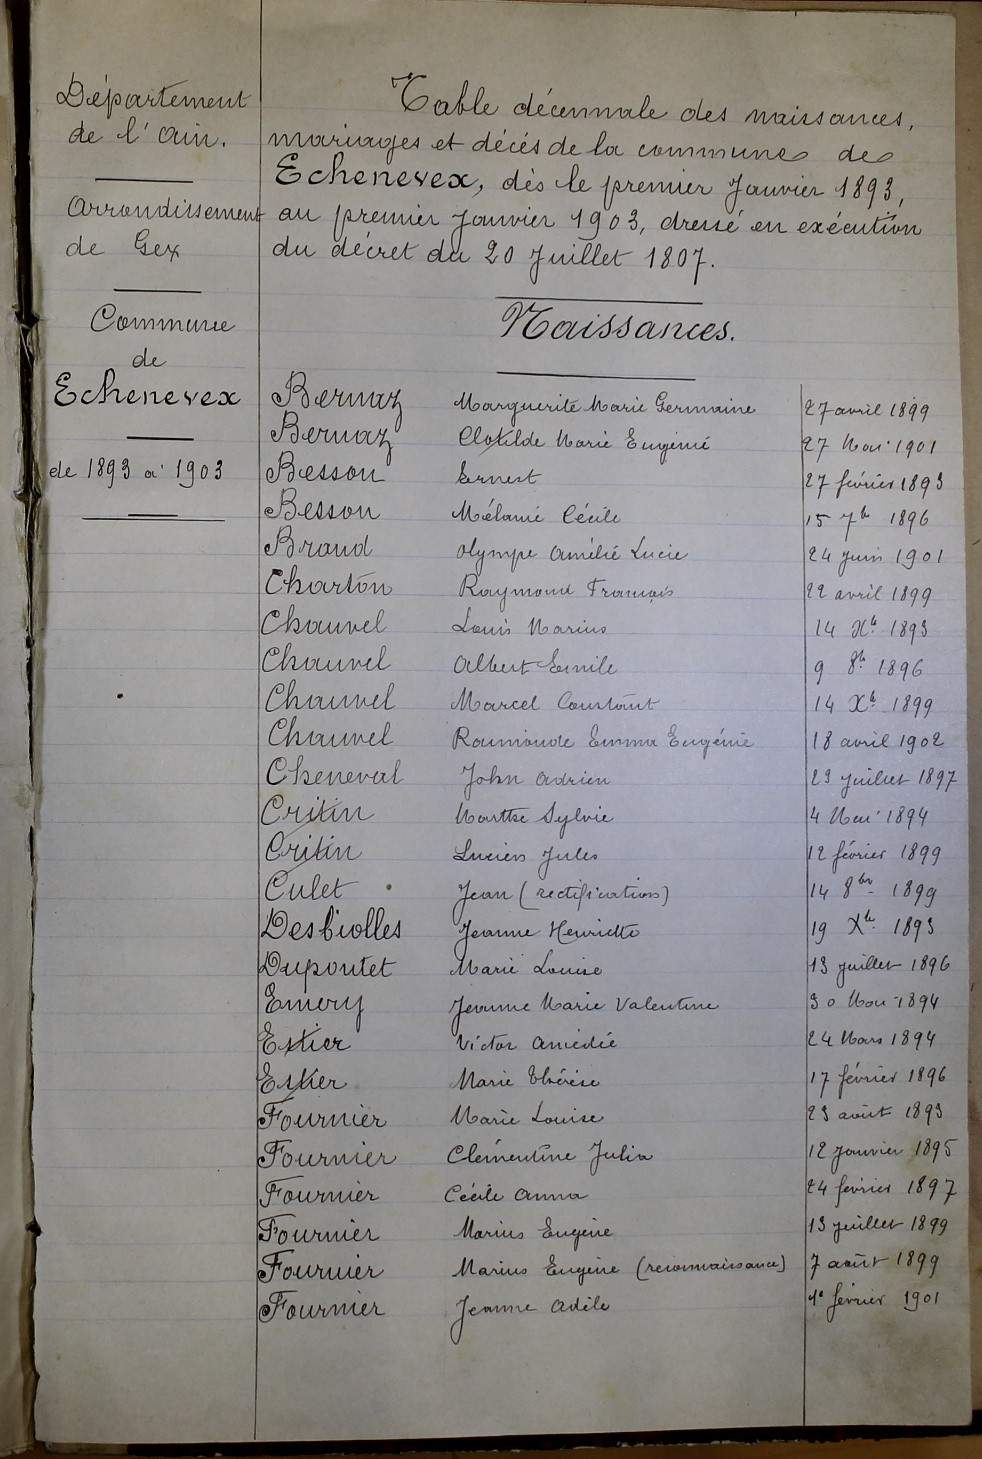 Département
de l'Ain.
Arrondissement
de Gex
Commune
de
Echenevex
de 1893 à 1903
Table décennale des naissances,
mariages et décés de la commune de
Echenevex, dès le premier Janvier 1893,
au premier Janvier 1903, dressé en exécution
du décret du 20 Juillet 1807.
Naissances.
Bernaz Marguerite Marie Germaine 27 avril 1899
Bernaz Clotilde Marie Eugénie 27 Mai 1901
Besson Ernest 27 février 1893
Besson Mélanie Cécile 15 7b 1896
Braud Olympe Amélie Lucie 24 juin 1901
Charton Raymond François 22 avril 1899
Chauvel Louis Marius 14 Xb. 1893
Chauvel Albert Emile 9 8b. 1896
Chauvel Marcel Constant 14 Xb. 1899
Chauvel Raumonde Emma Eugénie 18 avril 1902
Cheneval John Adrien 29 juillet 1897
Critin Marthe Sylvie 4 Mai 1894
Critin Lucien Jules 12 février 1899
Culet Jean (rectification) 14 8bre 1899
Desbiolles Jeanne Henriette 19 Xb. 1893
Dupontet Marie Louise 13 juillet 1896
Emery Jeanne Marie Valentine 30 Mai 1894
Estier Victor Amédée 24 Mars 1894
Estier Marie Thérèse 17 février 1896
Fournier Marie Louise 23 août 1893
Fournier Clémentine Julia 12 janvier 1895
Fournier Cécile Anna 24 février 1897
Fournier Marius Eugène 13 juillet 1899
Fournier Marius Eugène (reconnaissance) 7 août 1899
Fournier Jeanne Adèle 1e février 1901